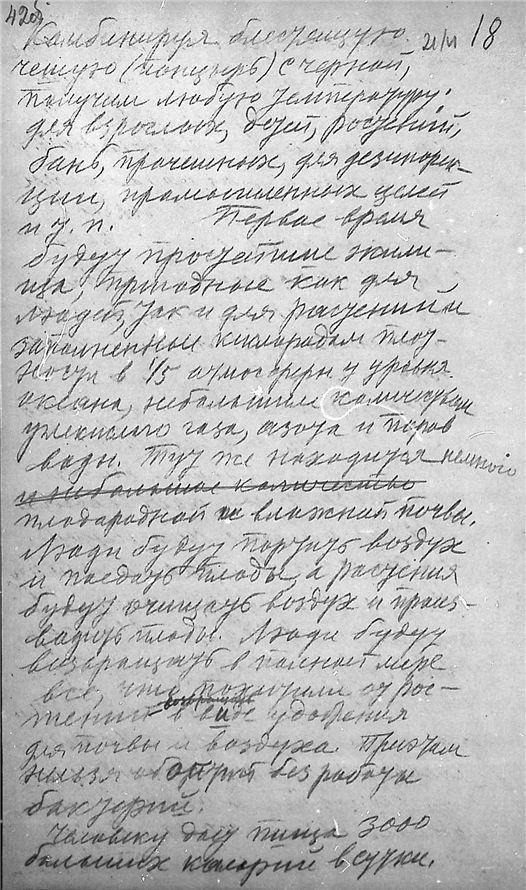 42об
21/VI 18
Комбинируя блестящую
чешую (панцырь) с черной,
получим любую температуру:
для взрослых, детей, растений,
бань, прачешных, для дезинфек-
ции, промышленных целей
и т. п. Первое время
будут простейшие жили-
ща, пригодные как для
людей, так и для растений и
заполненные кислородом плот-
ности в 1/5 атмосферы у уровня
океана, небольшим количеством
углекислого газа, азота и паров
воды. Тут же находится немного
и небольшое количество
плодородной и влажной почвы.
Люди будут портить воздух
и поедать плоды, а растения
будут очищать воздух и произ-
водить плоды. Люди будут
возвращать в полной мере
все, что похитили от рас-
тений в виде удобрения
для почвы и воздуха. При этом
нельзя обойтись без работы
бактерий.
Человеку дает пища 3000
больших калорий в сутки.